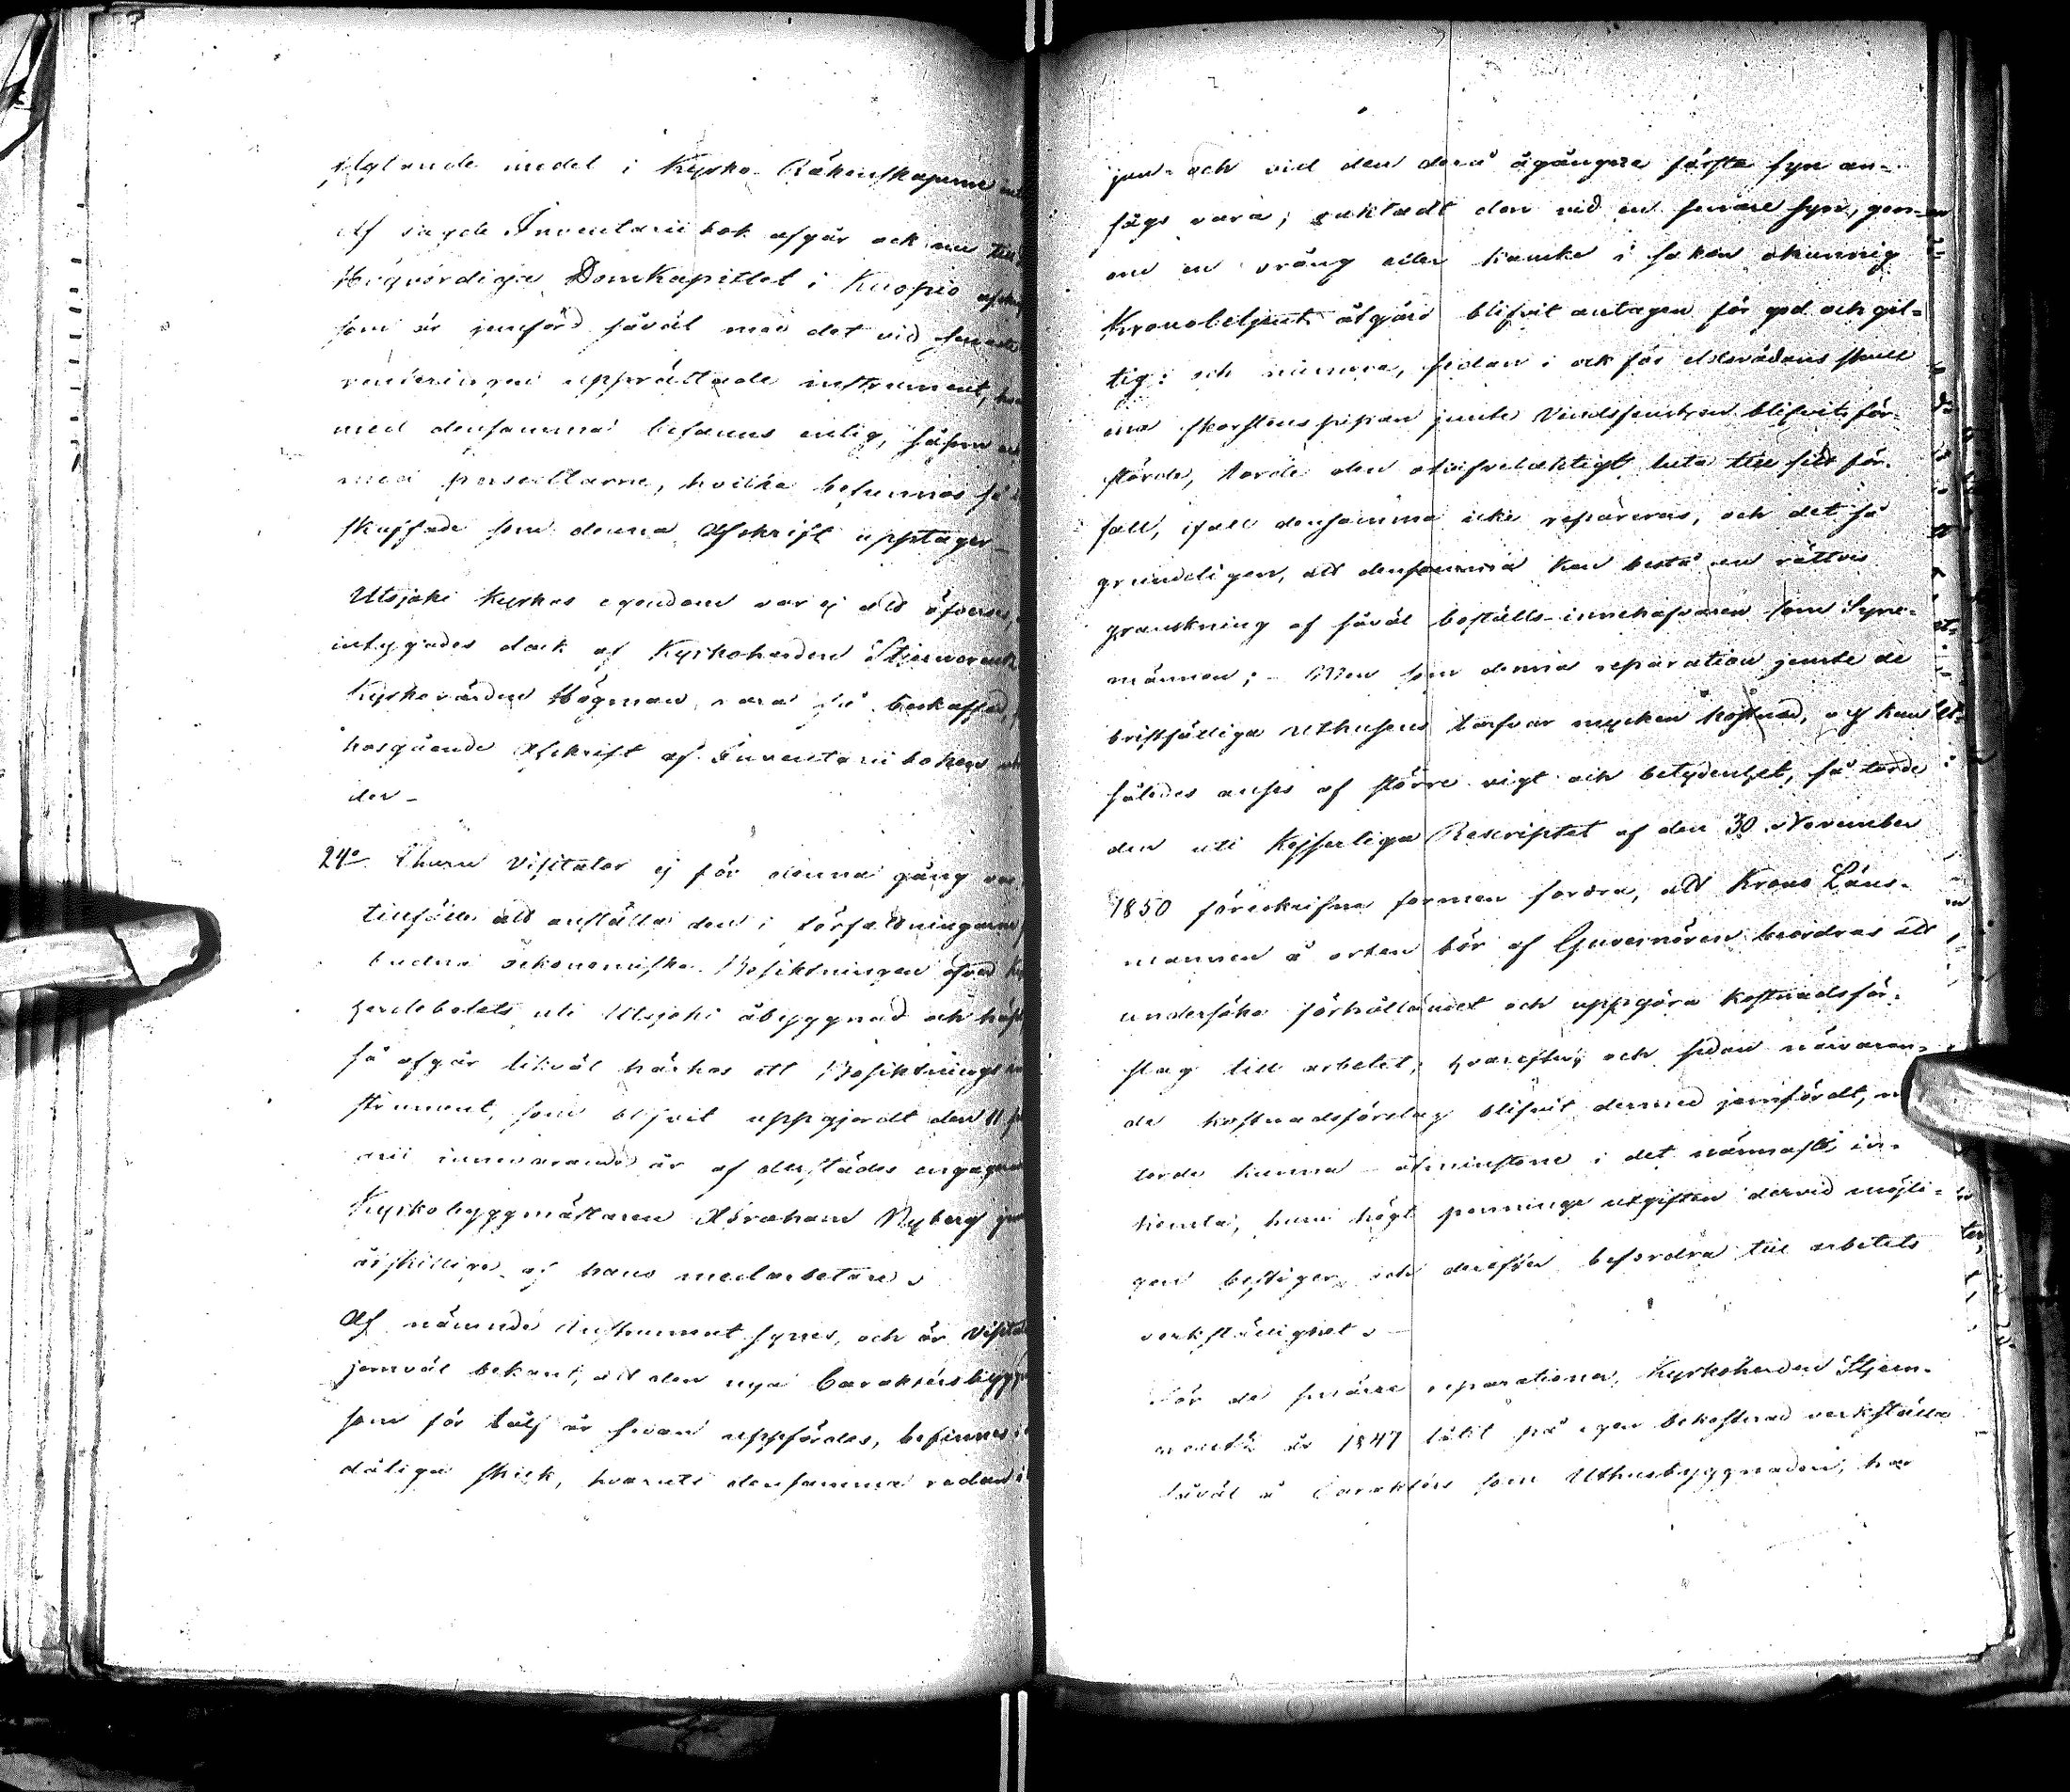 medel i Kyrko Räkenskaperne
Af sagde Inventarii bok afgår ock nu till
Högvördige Domkapitlet i Kuopio
som är jemförd såväl med det vid
upprättade instrument,
med densamma befanns enlig, såsom
med persedlarne, hvilka befunnos så
skaffade som denna Afskrift upptager_
Utsjoki Kyrkas egendom var ej
intygades dock af Kyrkoherden
Kyrkovärden Högman vara så beskaffad,
hosgående Afskrift af Inventarii boken
der_
24o Churu Visitator ej för denna gång
tillfälle att anställa den i författningarne
budna oekonomiska Besiktningen öfver
herdebolets uti Utsjoki åbyggnad och
så afgår likväl härhos ett Besiktnings
strument, som blifvit uppgjordt den 11
innevarande år af derstädes
Kyrkobyggmästaren Abraham Nyberg
åtskillige af hans medarbetare
Af nämnde Instrument synes, och är
jemväl bekant, att den nya Caraktersbygg
som för tolf år sedan uppfördes, befinnes
dåliga skick, hvaruti densamma redan
jan- och vid den derå ågångne första syn an-
sågs vara; oaktadt den vid en senare syn, gen-
om en vrång eller kanske i saken okunnig
Kronobetjents åtgärd blifvit antagen för god och gil-
tig: och numera, sedan i och för eldsvådans skull
ena skorstenspipan jemte Vindsfenstren blifvit för-
störde, torde den otvifvelaktigt luta till sitt för-
fall, ifall densamma icke repareras, och det så
grundeligen, att densamma kan bestå en rättvis
granskning af såväl boställs-innehafvaren som Syne-
männen; - Men som denna reparation jemte de
bristfälliga Uthusens tarfvar mycken kostnad, och kan
således anses af större vigt och betydenhet, så torde
den uti Kejserliga Rescriptet af den 30 November
1850 föreskrifna formen fordra, att Krono Läns-
mannen å orten bör af Guvernören beordras att
undersöka förhållandet och uppgöra kostnadsför-
slag till arbetet; hvarefter, och sedan närvaran-
de kostnadsförslag blifvit dermed jemfördt,
torde kunna - åtminstone i det närmaste in-
hemta, huru högt penninge utgiften dervid möjli-
gen bestiger, och derefter befordra till arbetets
verkställighet.
För de smärre reparationer, Kyrkoherden Stjern-
år 1847 låtit på egen bekostnad verkställa
såväl å Carakters som Uthusbyggnaden, har